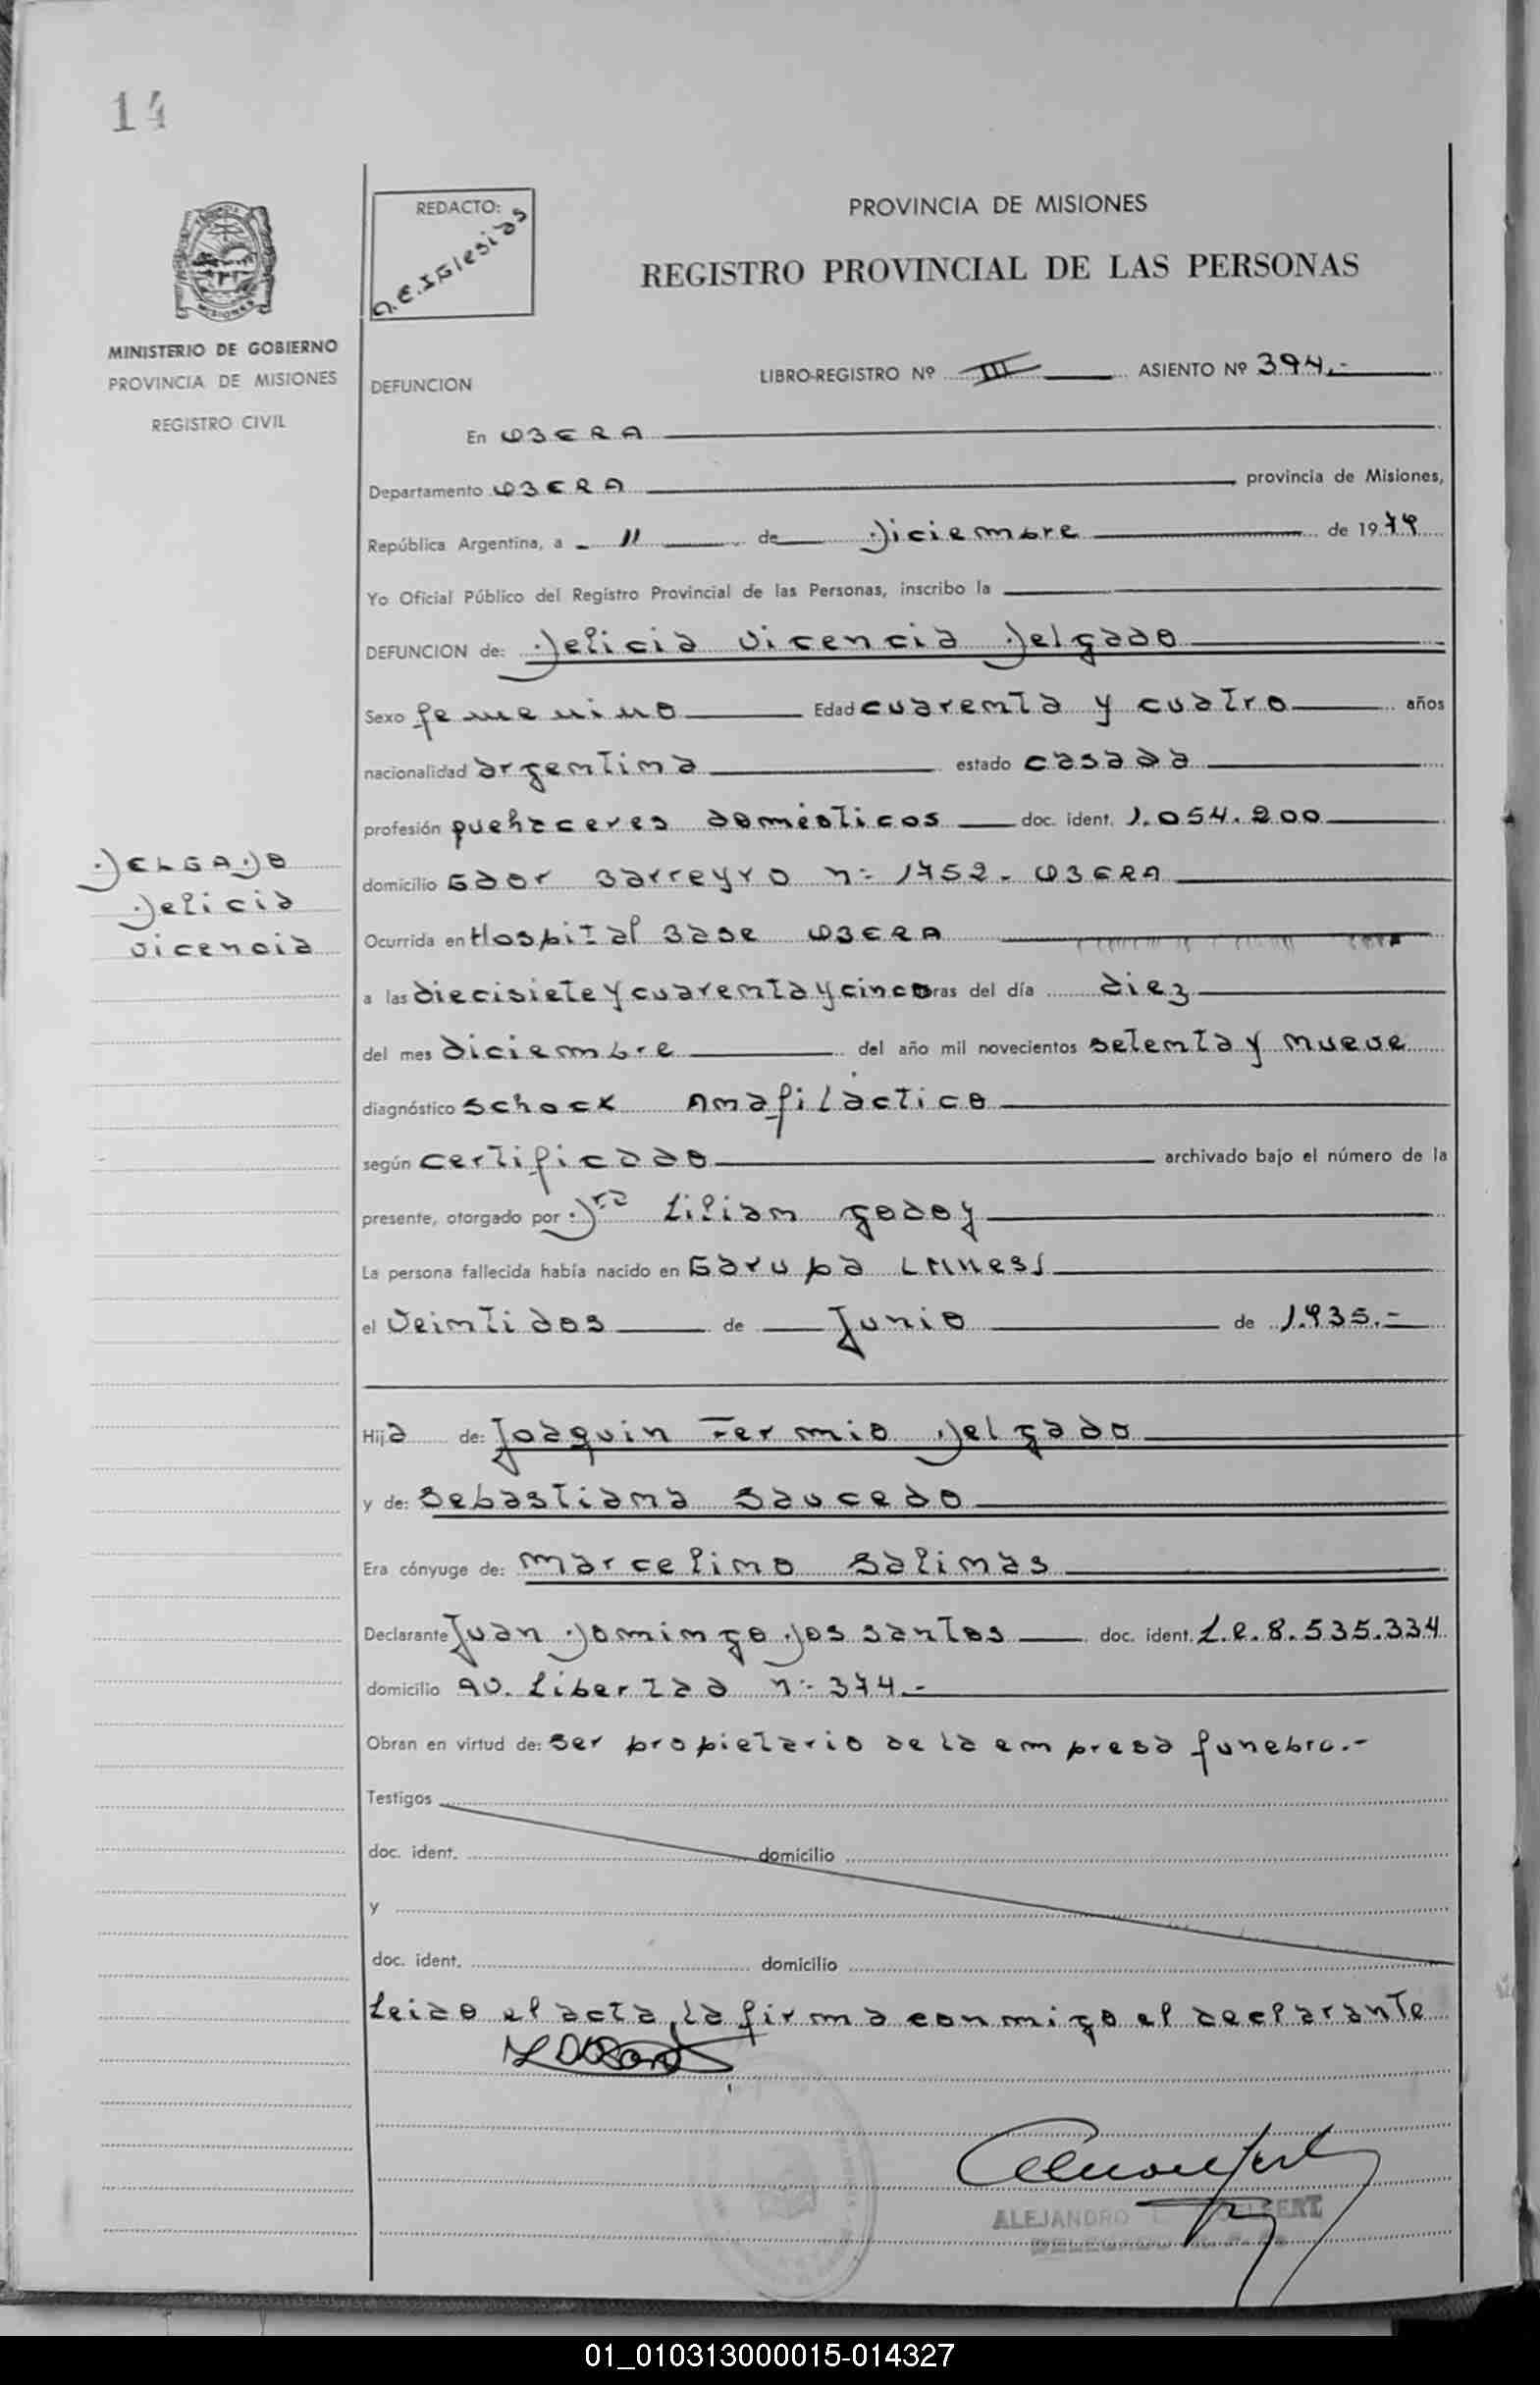 14
REDACTO:
A.E. Iglesias
PROVINCIA DE MISIONES
REGISTRO PROVINCIAL DE LAS PERSONAS
MINISTERIO DE GOBIERNO
PROVINCIA DE MISIONES
REGISTRO CIVIL
DEFUNCION
LIBRO-REGISTRO Nº III ASIENTO Nº 394.-
En OBERA
Departamento OBERA provincia de Misiones,
República Argentina, a - 11 de Diciembre de 1979
Yo Oficial Público del Registro Provincial de las Personas, inscribo la
DEFUNCION de: Delicia Vicencia Delgado
Sexo femenino Edad cuarenta y cuatro años
nacionalidad argentina estado casada
profesión quehaceres domésticos doc. ident. 1.054.200
DELGADO
Delicia
Vicencia
domicilio Gdor Barreyro nº 1752. OBERA
Ocurrida en Hospital Base OBERA
a las diecisiete y cuarenta y cinco ras del día diez
del mes diciembre del año mil novecientos setenta y nueve
diagnóstico Schock Anafiláctico
según certificado archivado bajo el número de la
presente, otorgado por Dra Lilian Godoy
La persona fallecida había nacido en Garupa
el Veintidos de Junio de 1.935.-
Hija de: Joaquin Fermio Delgado
y de: Sebastiana Saucedo
Era cónyuge de: Marcelino Salinas
Declarante Juan Domingo Dos Santos doc. ident. L.E. 8.535.334
domicilio AV. Libertad nº 374.-
Obran en virtud de: ser propietario de la empresa funebre.-
Testigos
doc. ident. domicilio
y
doc. ident. domicilio
Leido el acta, la firma conmigo el declarante
ALEJANDRO
DELEGADO
01_010313000015-014327